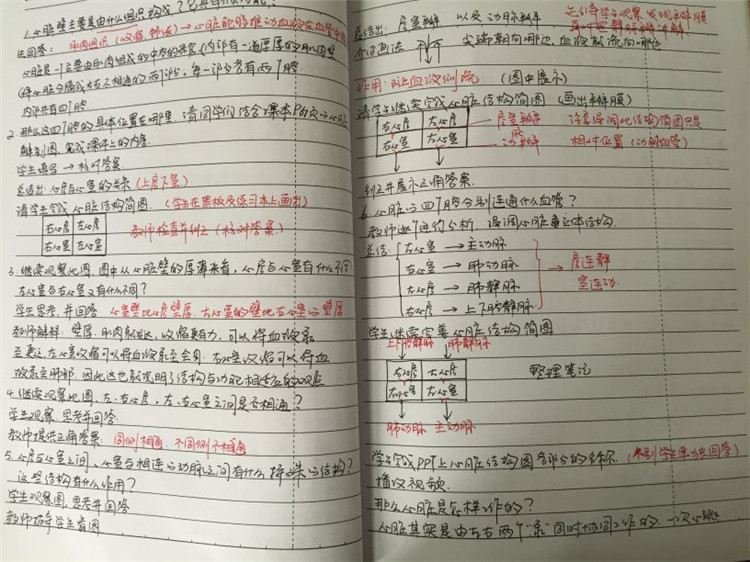 1.心脏壁主要是由什么组织构成？它具有什么功能？
生回答：肌肉组织（收缩、舒张）→心脏能够推动血液在血管中
心脏是一个主要由肌肉组成的中空的器官（内部有一道厚厚的肌肉壁
将心脏分隔成左右不相通的两部分，每一部分各有两个腔
内部共有四个腔
2.那么这四个腔的具体位置在哪里，请同学们结合课本
解剖图，完成课件上的内容。
学生填写→核对答案
总结出：心房与心室的关系（上房下室）
请学生完成心脏结构简图。（学生在黑板及练习本上画出）
右心房 左心房
右心室 左心室
教师检查并纠正（核对答案）
3.继续观察此图，图中从心脏壁的厚薄来看，心房与心室有什么不同
左心室与右心室又有什么不同？
学生思考，并回答：心室壁比心房壁厚，左心室的壁比右心室的壁厚
教师解释：壁厚，肌肉就发达，收缩更有力，可以将血液泵
至更远，左心室收缩可以将血液泵至全身，右心室收缩可以将血
液泵至肺部，因此这也就说明了结构与功能相适应的观点
4.继续观察此图，左、右心房，左、右心室之间是否相通？
学生观察，思考并回答
教师提供正确答案：同侧相通，不同侧不相通
5.心房与心室之间，心室与相连的动脉之间有什么特殊的结构？
这些结构有什么作用？
学生观察图，思考并回答
教师指导学生看图
总结出：房室瓣 以及动脉瓣
介绍画法 尖端朝向哪边，血液就流向哪边
先引导学生观察，发现瓣膜
作用：防止血液倒流 （图中展示）
请学生继续完成心脏结构简图（画出瓣膜）
右心房 左心房 → 房室瓣
右心室 左心室 → 动脉瓣
注意强调此结构简图只是
相对位置（动静血管）
纠正并展示正确答案
6.心脏的四个腔分别连通什么血管？
教师逐个进行分析，强调心脏为立体结构。
总结：左心室→主动脉
右心室→肺动脉
左心房→肺静脉
右心房→上下腔静脉
房连静
室连动
学生继续完善心脏结构简图
上下腔静脉 肺静脉
右心房 左心房
右心室 左心室
整理笔记
肺动脉 主动脉
学生完成PPT上心脏结构图各部分的名称
播放视频
那么心脏是怎样工作的？
心脏其实是由左右两个"泵"同时协同工作的，一次心跳